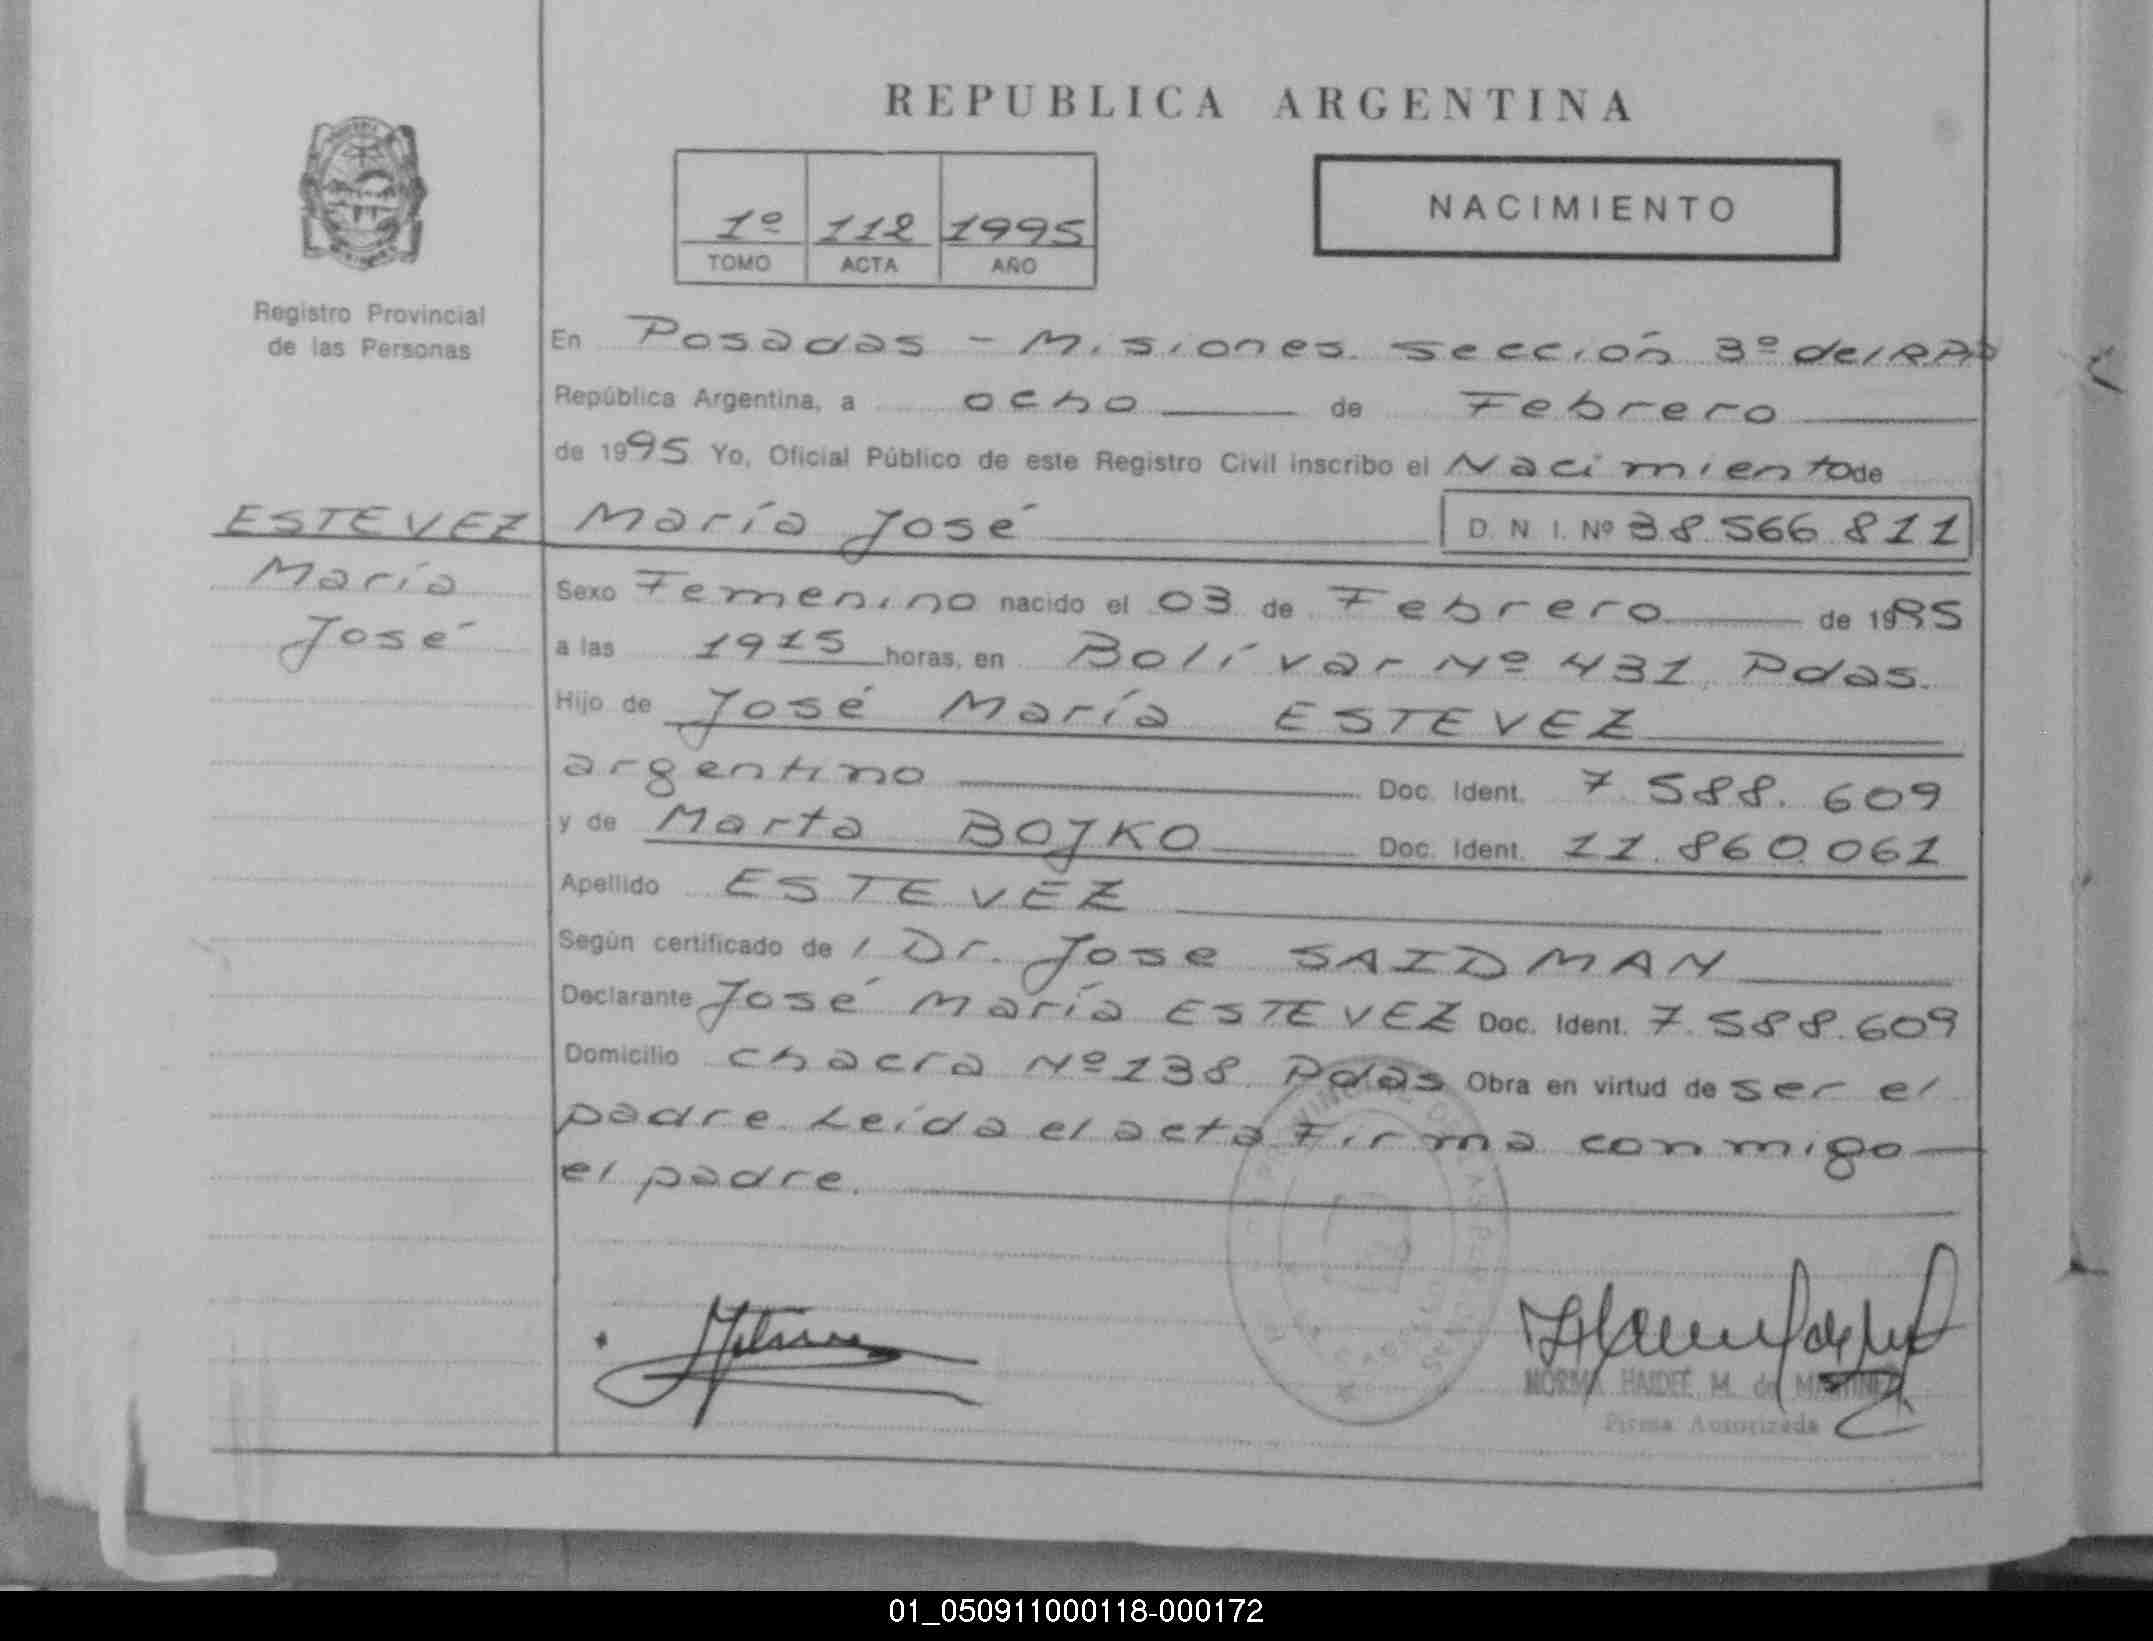 REPUBLICA ARGENTINA
1º 112 1995
TOMO ACTA AÑO
NACIMIENTO
Registro Provincial
de las Personas
En Posadas - Misiones. sección 3º del RPP
República Argentina, a ocho de Febrero
de 1995 Yo, Oficial Público de este Registro Civil inscribo el Nacimiento de
ESTEVEZ María José D. N. I. Nº 38.566.811
María
José
Sexo Femenino nacido el 03 de Febrero de 1995
a las 19 15 horas, en Bolívar Nº 431, Pdas.
Hijo de José María ESTEVEZ
argentino Doc. Ident. 7.588.609
y de Marta BOJKO Doc. Ident. 11.860.061
Apellido ESTEVEZ
Según certificado de / Dr. Jose SAIDMAN
Declarante José María ESTEVEZ Doc. Ident. 7.588.609
Domicilio chacra Nº 138. Pdas Obra en virtud de ser el
padre. Leída el acta Firma conmigo
el padre.
NORMA HAIDEE M. de MARTINEZ
Firma Autorizada
01_050911000118-000172